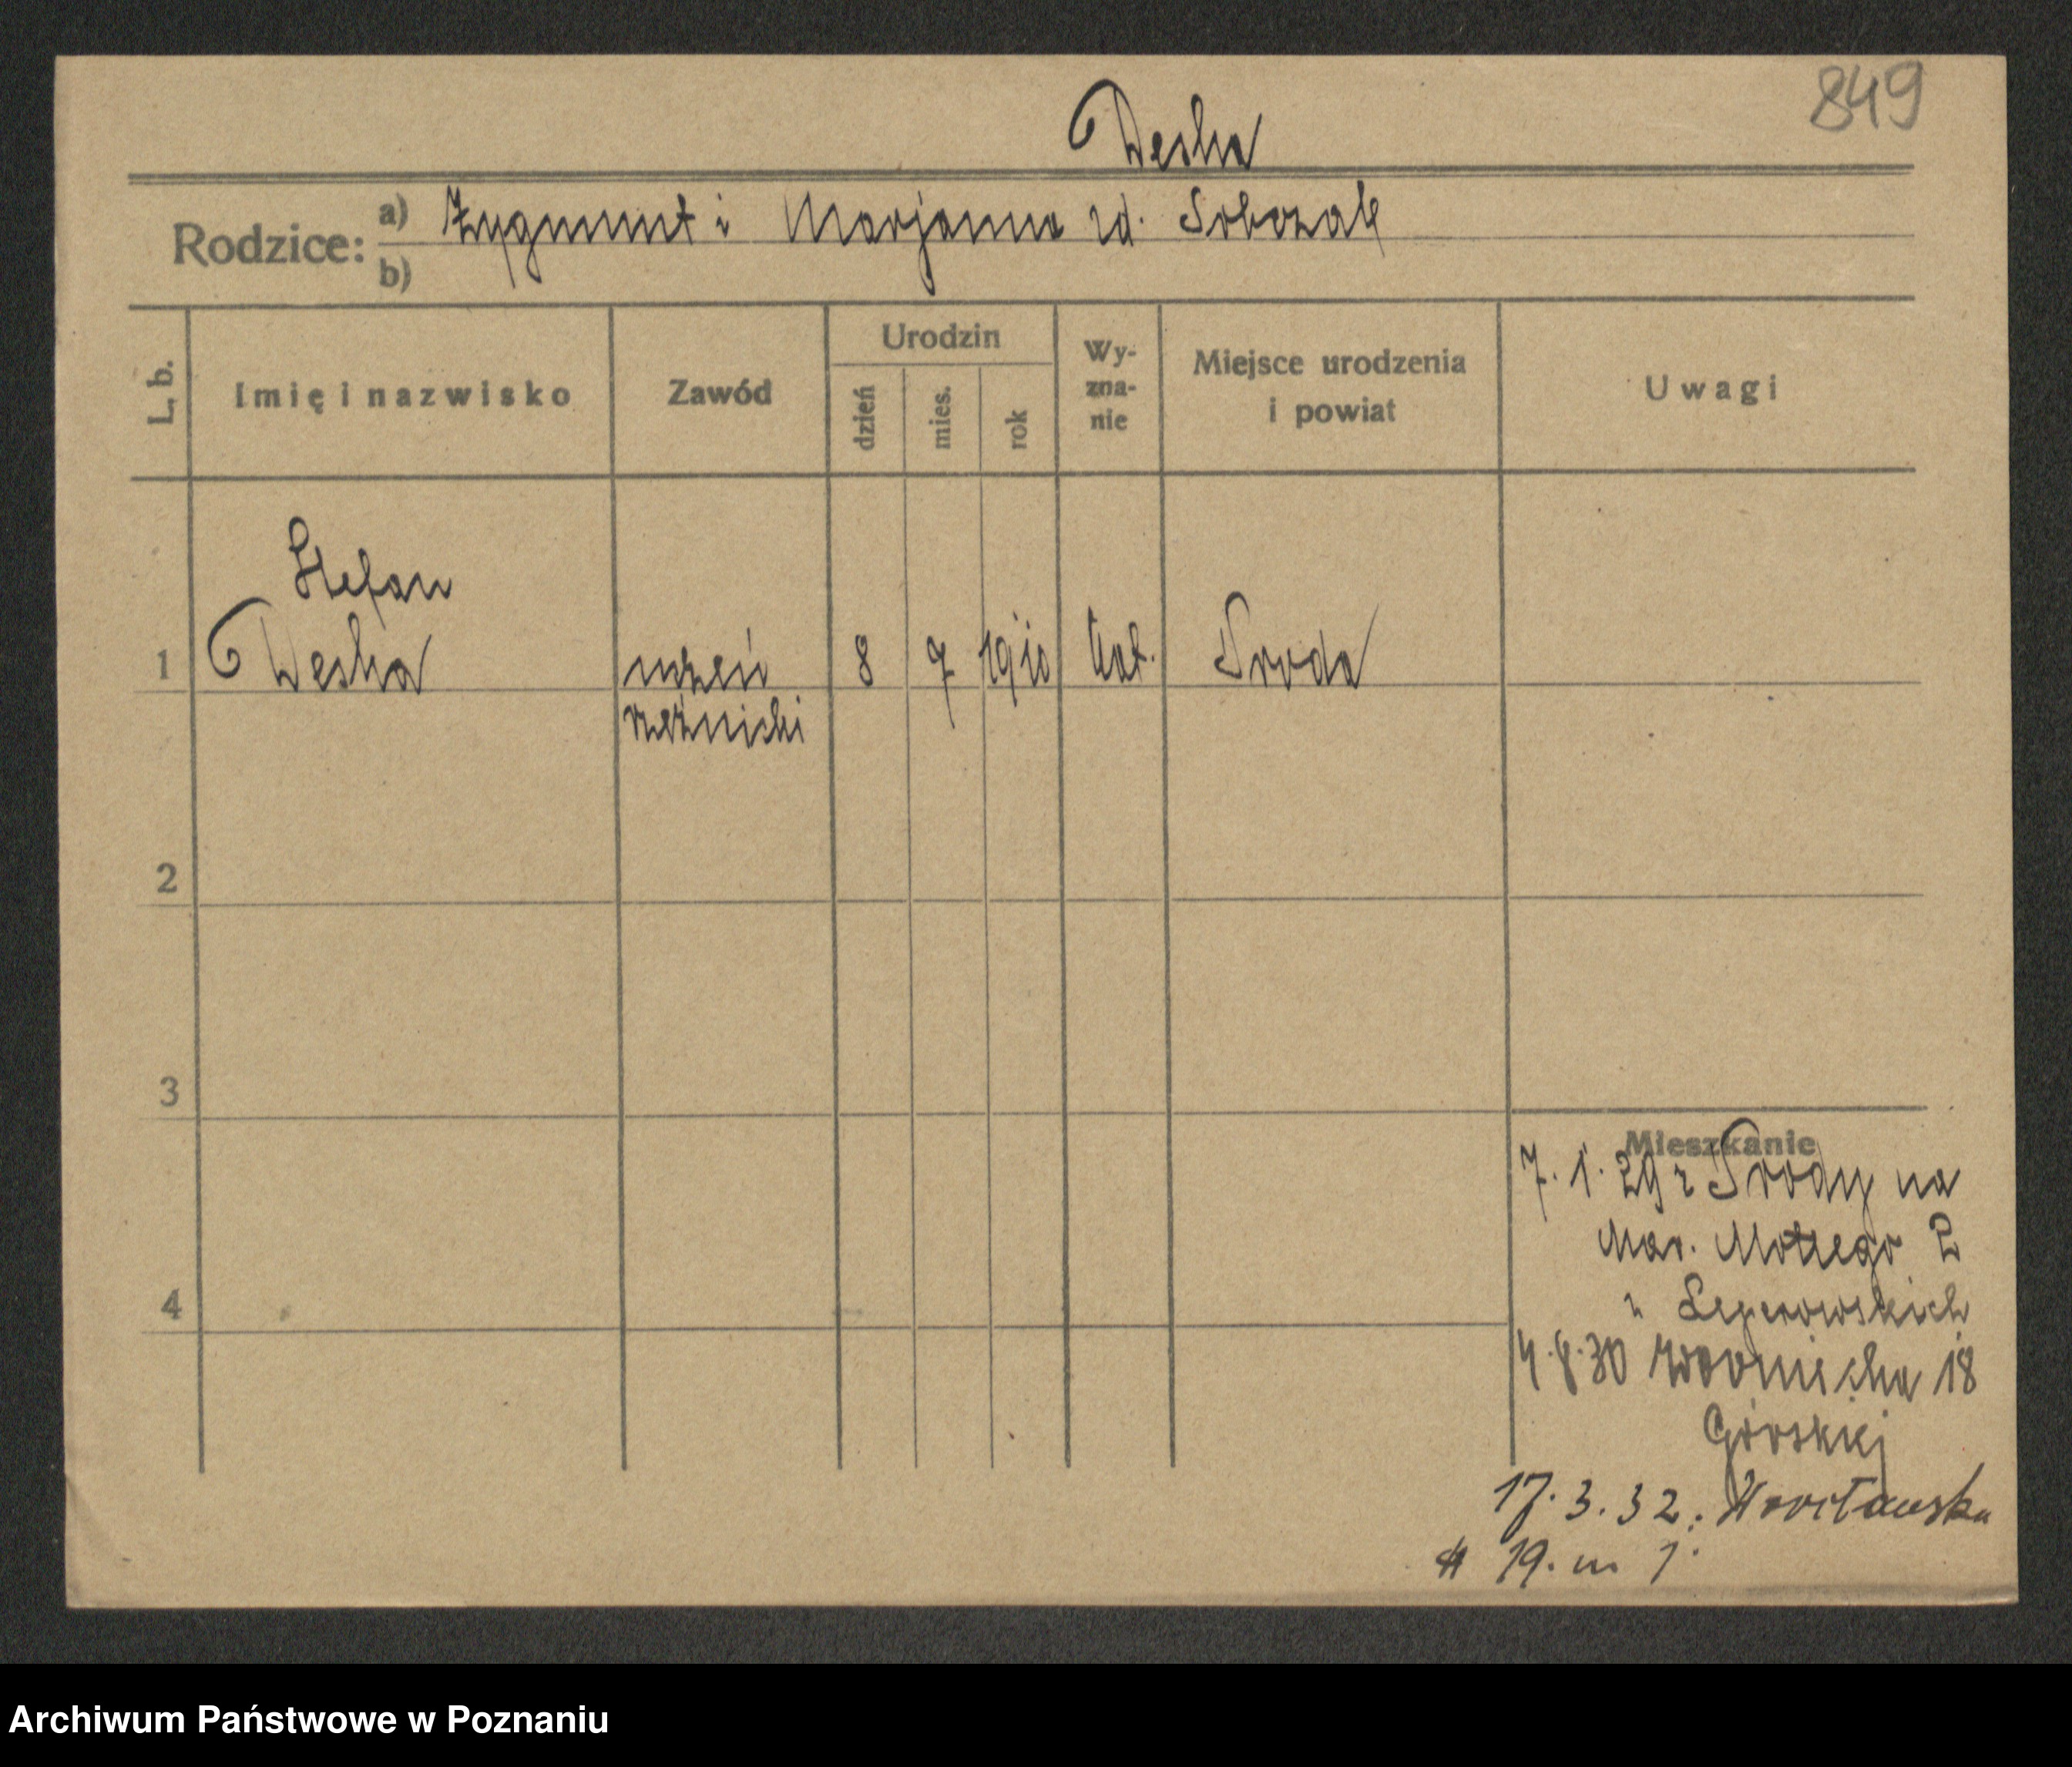 849
Deska
Rodzice: a) Zygmunt i Marjanna zd. Sobczak
b)
L. b. Imię i nazwisko Zawód Urodzin dzień mies. rok Wy-zna-nie Miejsce urodzenia i powiat Uwagi
Stefan
1 Deska uczeń 8 7 1910 kat. Środa
rzeźnicki
2
3
Mieszkanie
7. 1. 29 z Środy na
Mar. Motego 2
4
4.8.30 18
Górskiej
17. 3. 32: Wrocławska
19. m 1.
Archiwum Państwowe w Poznaniu